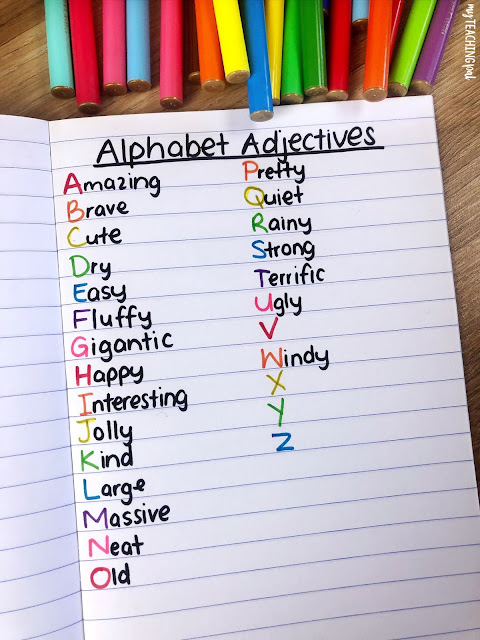 my TEACHING pal
Alphabet Adjectives
Amazing
Brave
Cute
Dry
Easy
Fluffy
Gigantic
Happy
Interesting
Jolly
Kind
Large
Massive
Neat
Old
Pretty
Quiet
Rainy
Strong
Terrific
Ugly
V
Windy
X
Y
Z